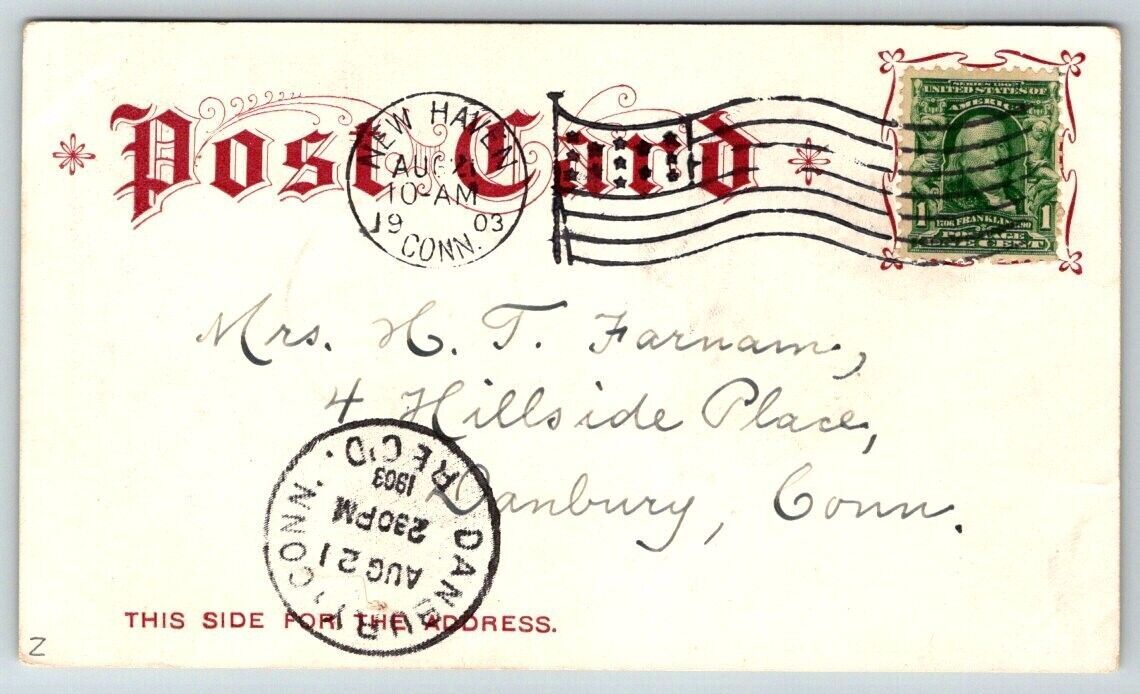 Post Card
NEW HAVEN
AUG 21
10-AM
1903
CONN.
UNITED STATES
OF AMERICA
1 FRANKLIN 1
POSTAGE
ONE CENT
Mrs. H. T. Farnam,
4 Hillside Place,
Danbury, Conn.
DANBURY, CONN.
AUG 21
230PM
1903
REC'D.
THIS SIDE FOR THE ADDRESS.
Z